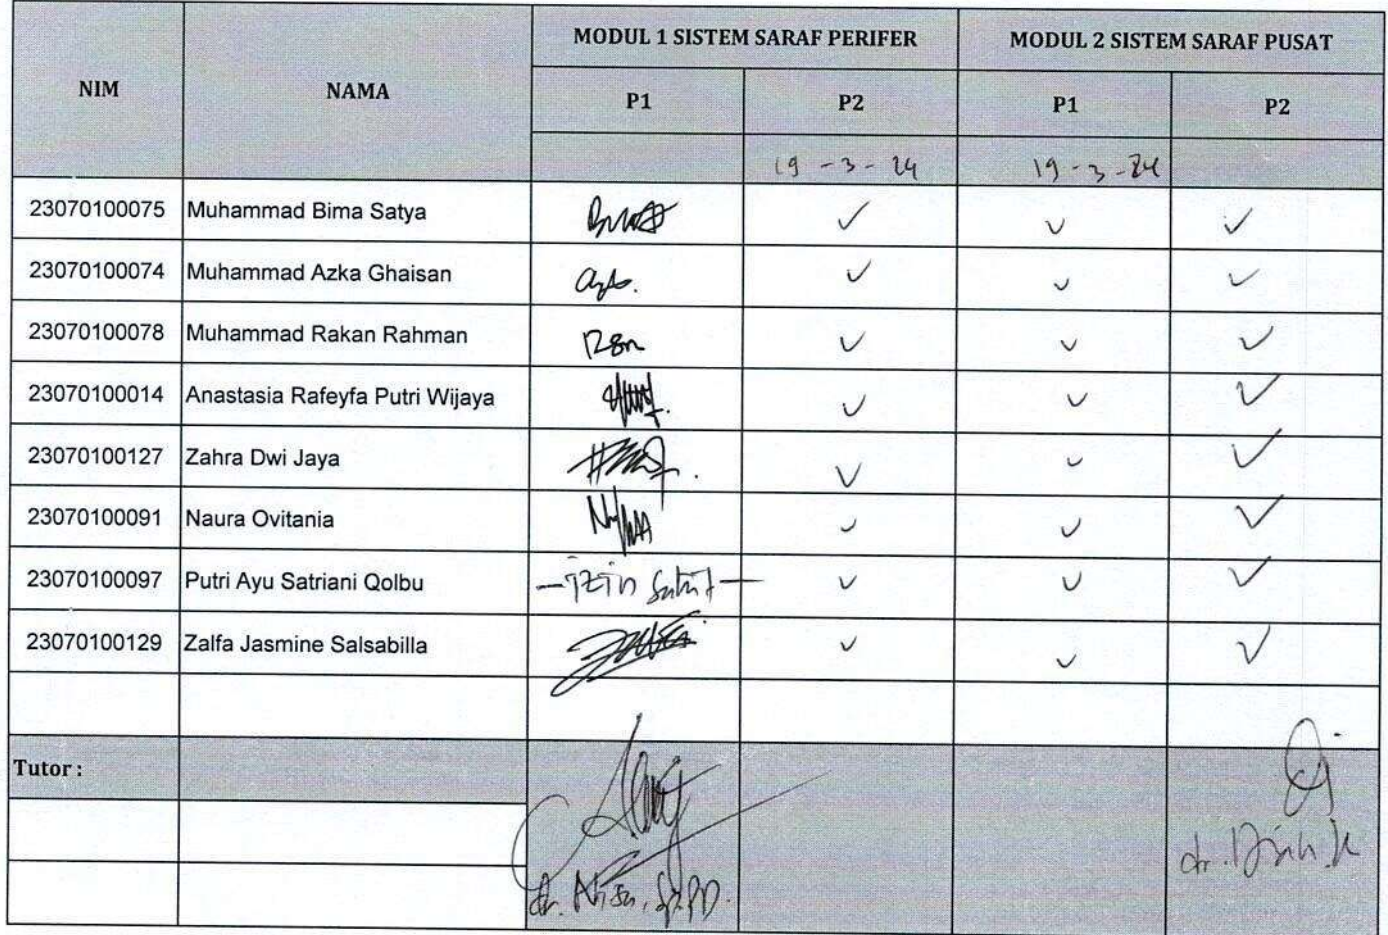 MODUL 1 SISTEM SARAF PERIFER MODUL 2 SISTEM SARAF PUSAT
NIM NAMA P1 P2 P1 P2
19 - 3 - 24 19 - 3 - 24
23070100075 Muhammad Bima Satya ✓ ✓ ✓
23070100074 Muhammad Azka Ghaisan ✓ ✓ ✓
23070100078 Muhammad Rakan Rahman ✓ ✓ ✓
23070100014 Anastasia Rafeyfa Putri Wijaya ✓ ✓ ✓
23070100127 Zahra Dwi Jaya ✓ ✓ ✓
23070100091 Naura Ovitania ✓ ✓ ✓
23070100097 Putri Ayu Satriani Qolbu - izin sakit - ✓ ✓ ✓
23070100129 Zalfa Jasmine Salsabilla ✓ ✓ ✓
Tutor :
dr. Nisa, Sp.PD.
dr.